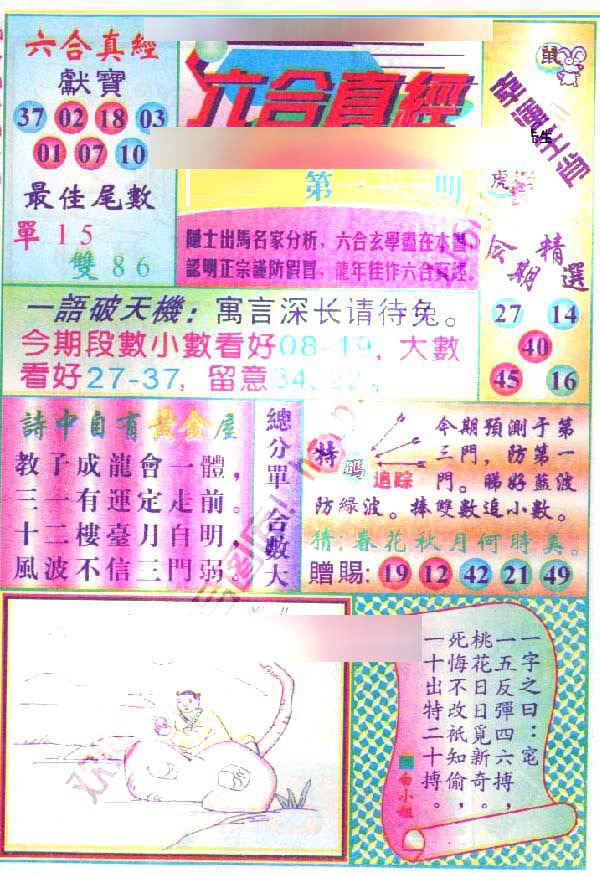 六合真經
獻寶
37 02 18 03
01 07 10
最佳尾數
單 15
雙 86
六合真經
第 期
隱士出馬名家分析，六合玄學盡在本圖，
認明正宗謹防假冒，龍年佳作六合真經。
鼠
虎
今期精選
27 14
40
45 16
一語破天機：寓言深长请待兔。
今期段數小數看好08-19，大數
看好27-37，留意34、22。
詩中自有黃金屋
教子成龍會一體，
三一有運定走前。
十二樓臺月自明，
風波不信三門弱。
總分單 合數大
特碼追踪
今期預測于第
三門，防第一
門。睇好藍波
防綠波。捧雙數追小數。
猜：春花秋月何時美。
贈賜：19 12 42 21 49
一字之曰：宅
一五反彈四六搏，
桃花日日覓新奇。
死悔不改祇知偷，
一十出特二十搏。
白小姐